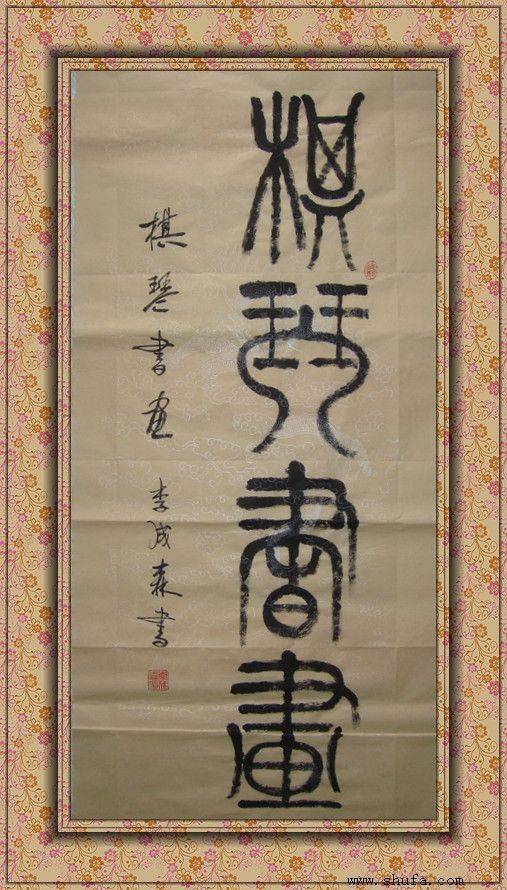 棋琴書畫
棋琴书画 李成森书
www.shufa.com